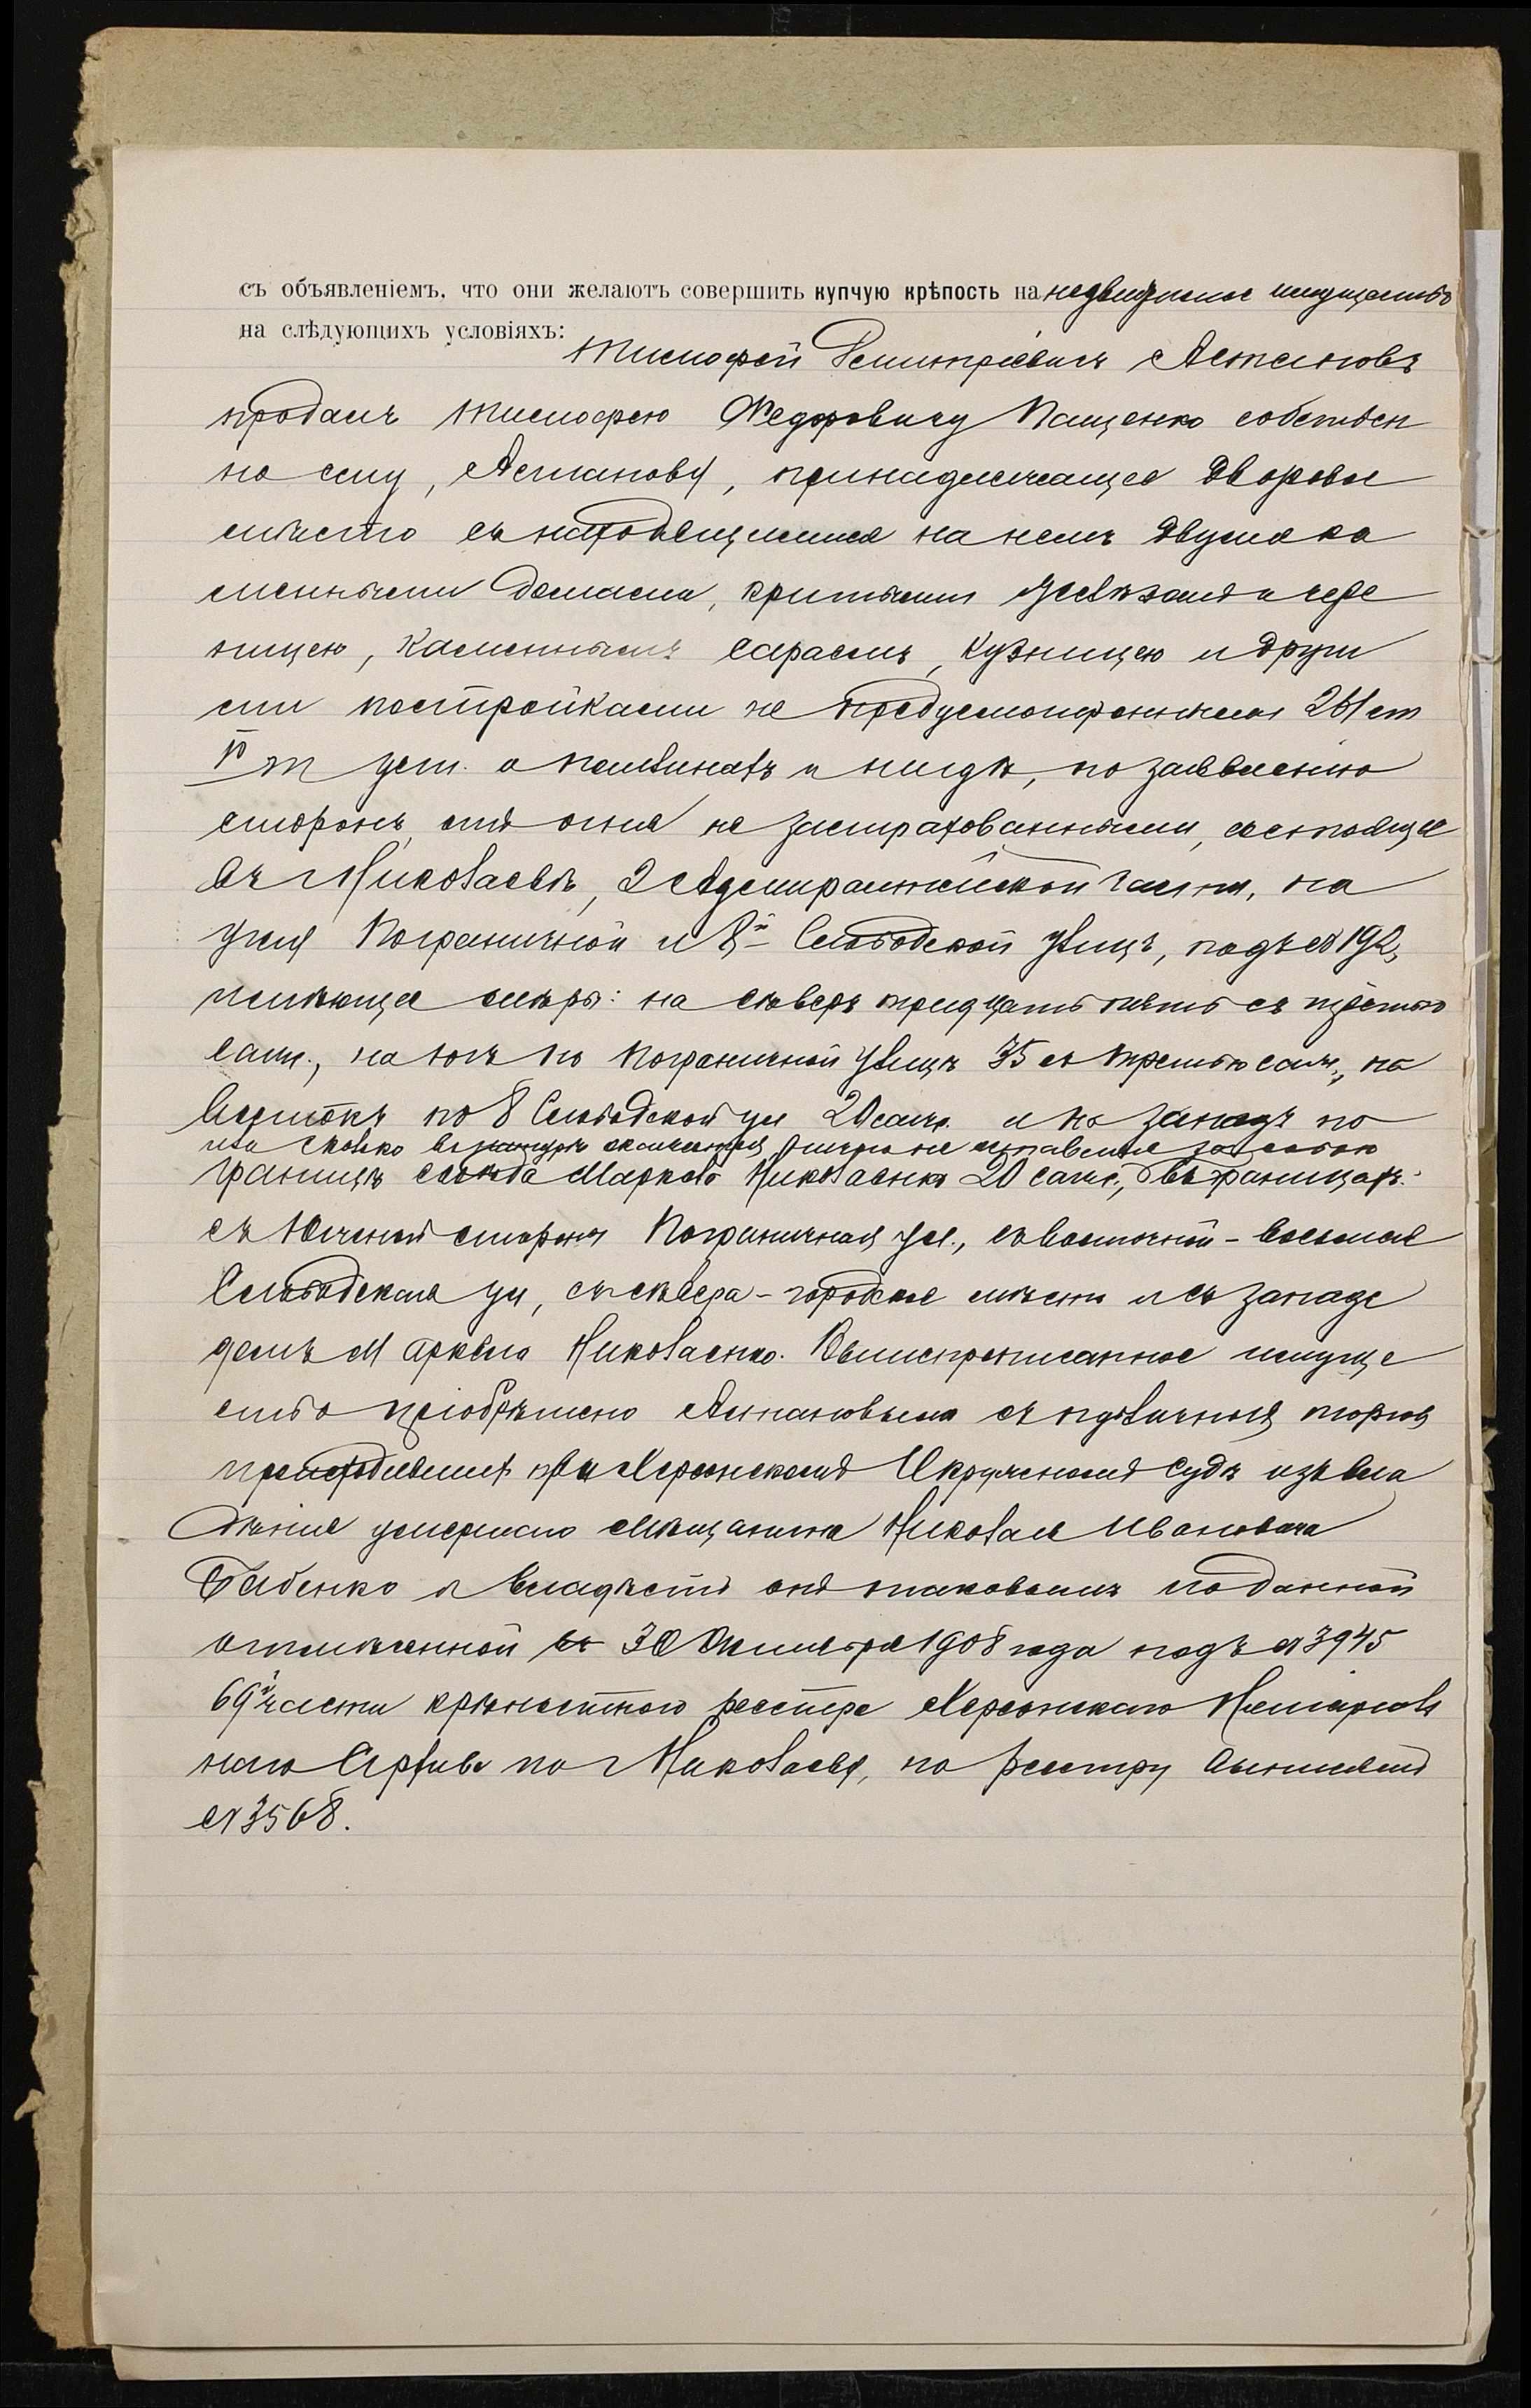 съ объявленіемъ, что они желаютъ совершить купчую крѣпость на недвижимое имущество
на слѣдующихъ условіяхъ:
Тимофей Дмитріевичъ Астановъ
продалъ Тимофею Федоровичу Пащенко собствен
но ему, Астанову, принадлежащее дворовое
мѣсто съ находящимися на немъ двумя ка
менными домами, крытыми желѣзомъ и чере
пицею, каменнымъ сараемъ, кузницею и други
ми постройками не предусмотренными 261 ст
V т уст. о пошлинахъ и нигдѣ, по заявленію
сторонъ, отъ огня не застрахованными, состоящее
въ г Николаевѣ, 2 Адмиралтейской части, на
углу Пограничной и 8й Слободской улицъ, подъ № 192,
имѣющее мѣры: на сѣверъ тридцать пять съ третью
саж., на югъ по Пограничной улицѣ 35 съ третью саж., на
востокъ по 8 Слободской ул 20 саж. и на западъ по
или сколько въ натурѣ окажется, ничего не оставляя за собою
границѣ сосѣда Маркела Николаенко 20 саж., въ границахъ:
съ южной стороны Пограничная ул., съ восточной - восьмая
Слободская ул, съ сѣвера - городское мѣсто и съ запада
домъ Маркела Николаенко. Вышепрописанное имуще
ство пріобрѣтено Астановымъ съ публичныхъ торговъ
происходившихъ при Херсонскомъ Окружномъ Судѣ изъ вла
дѣнія умершаго мѣщанина Николая Ивановича
Бабенко и владѣетъ онъ таковымъ по данной
отмѣченной въ 30 Октября 1908 года подъ № 3945
69й части крѣпостного реестра Херсонскаго Нотаріаль
наго Архива по г Николаеву, по реестру
№ 3568.